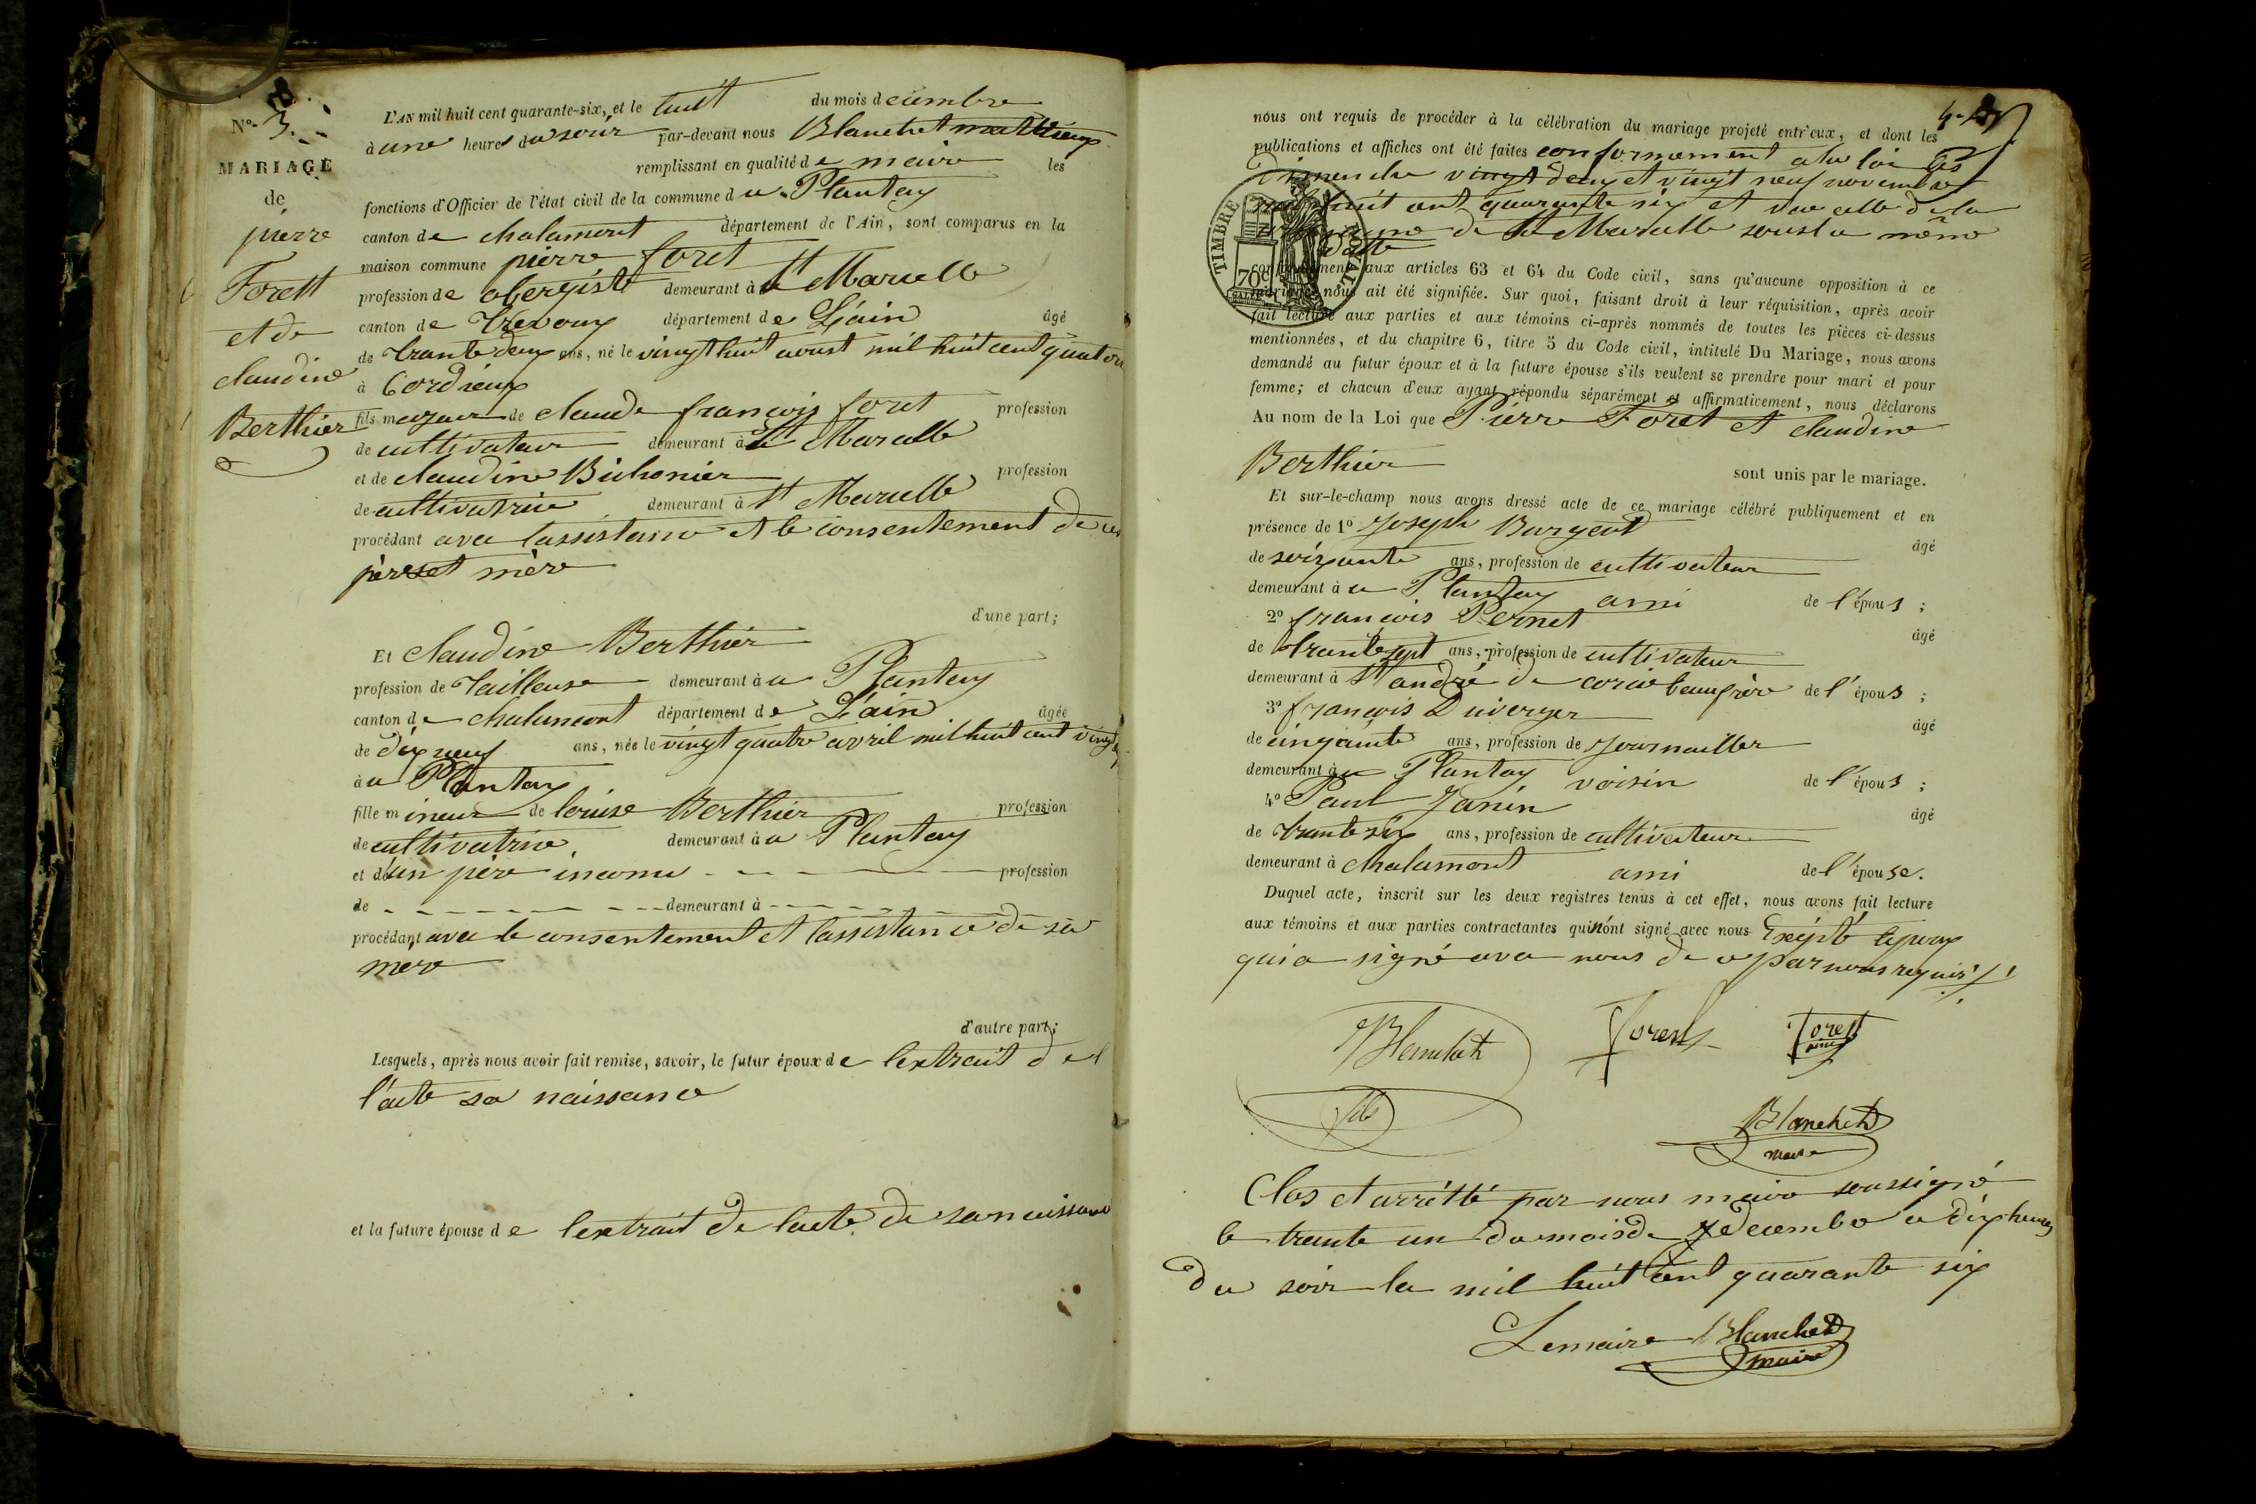 N° 3.
MARIAGE
de
pierre
Forett
et de
claudine
Berthier
L'AN mil huit cent quarante-six, et le huit du mois decembre
à une heures du soir par-devant nous Blanchet mathieux
remplissant en qualité de maire les
fonctions d'Officier de l'état civil de la commune du Plantay
canton de chalamont département de l'Ain, sont comparus en la
maison commune pierre foret
profession de obergiste demeurant à St Marcelle
canton de Trevoux département de L'ain âgé
de trante deux ans, né le vingt huit aoust mil huit cent quator
à Cordieux
fils majeur de claude françois foret profession
de cultivateur demeurant à St Marcelle
et de claudine Bichonier profession
de cultivatrice demeurant à St Marcelle
procédant avec l'assistance et le consentement de ces
père et mère
d'une part;
Et claudine Berthier
profession de Tailleuse demeurant à u Plantay
canton de chalamont département de L'ain âgée
de dix neuf ans, née le vingt quatre avril mil huit cent vingt
à u Plantay
fille mineur de louise Berthier profession
de cultivatrice demeurant à u Plantay
et d'un père inconnu profession
de demeurant à
procédant avec le consentement et l'assistance de sa
mère
d'autre part;
Lesquels, après nous avoir fait remise, savoir, le futur époux de l'extrait de
l'acte sa naissance
et la future épouse de l'extrait de l'acte de sa naissance
nous ont requis de procéder à la célébration du mariage projeté entr'eux, et dont les
publications et affiches ont été faites conformement a la loi les
Dimenche vingt deux et vingt neuf novembre
mil huit cent quarante six et vue celle de la
commune de St Marcelle sous la même
Date
conformément aux articles 63 et 64 du Code civil, sans qu'aucune opposition à ce
mariage nous ait été signifiée. Sur quoi, faisant droit à leur réquisition, après avoir
fait lecture aux parties et aux témoins ci-après nommés de toutes les pièces ci-dessus
mentionnées, et du chapitre 6, titre 5 du Code civil, intitulé Du Mariage, nous avons
demandé au futur époux et à la future épouse s'ils veulent se prendre pour mari et pour
femme; et chacun d'eux ayant répondu séparément et affirmativement, nous déclarons
Au nom de la Loi que Pierre Foret et claudine
Berthier sont unis par le mariage.
Et sur-le-champ nous avons dressé acte de ce mariage célébré publiquement et en
présence de 1° Joseph Burgeat âgé
de soixante ans, profession de cultivateur
demeurant à u Plantay ami de l'épous;
2° françois Pernet âgé
de trante sept ans, profession de cultivateur
demeurant à St andré de corcie beaufrère de l'épous;
3° françois Duiverger âgé
de cinqante ans, profession de Journaillier
demeurant à u Plantay voisin de l'épous;
4° Paul Janin âgé
de trante six ans, profession de cultivateur
demeurant à chalamont ami de l'épouse.
Duquel acte, inscrit sur les deux registres tenus à cet effet, nous avons fait lecture
aux témoins et aux parties contractantes qui n'ónt signé avec nous Exépté lepoux
qui a signé avec nous de ce par nous requis
TIMBRE ROYAL
70c
Blanchet
fils
forest
forest
ainé
Blanchet
maire
Clos et arrêtté par nous maire soussigné
le trante un du mois de decembre a dix heures
du soir la mil huit cent quarante six
Lemaire Blanchet
maire